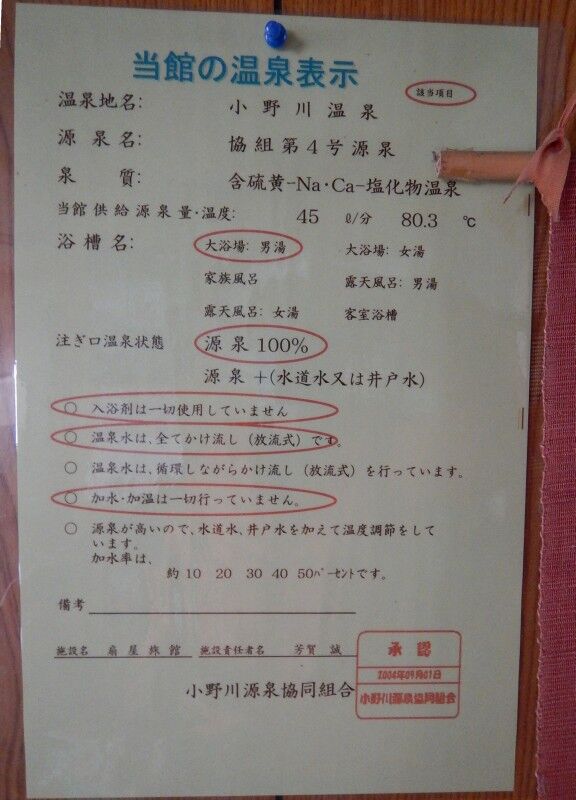 当館の温泉表示
該当項目
温泉地名: 小野川温泉
源泉名: 協組第4号源泉
泉質: 含硫黄-Na・Ca-塩化物温泉
当館供給源泉量・温度: 45 ℓ/分 80.3 ℃
浴槽名: 大浴場: 男湯 大浴場: 女湯
家族風呂 露天風呂: 男湯
露天風呂: 女湯 客室浴槽
注ぎ口温泉状態 源泉100%
源泉+(水道水又は井戸水)
○ 入浴剤は一切使用していません
○ 温泉水は、全てかけ流し(放流式)です。
○ 温泉水は、循環しながらかけ流し(放流式)を行っています。
○ 加水・加温は一切行っていません。
○ 源泉が高いので、水道水、井戸水を加えて温度調節をして
います。
加水率は、
約10 20 30 40 50パーセントです。
備考
施設名 扇屋旅館 施設責任者名 芳賀 誠
承認
2004年09月01日
小野川源泉協同組合
小野川源泉協同組合